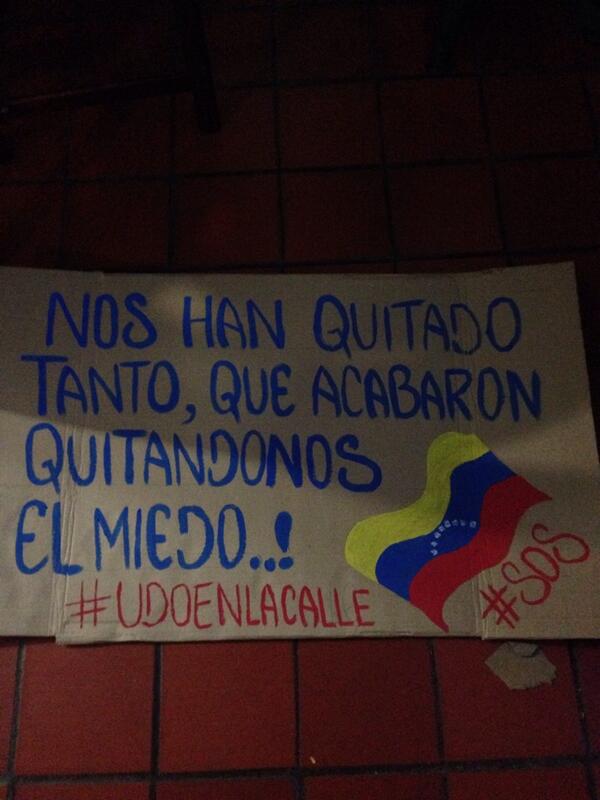 NOS HAN QUITADO
TANTO, QUE ACABARON
QUITANDONOS
EL MIEDO..!
#UDOENLACALLE
#SOS